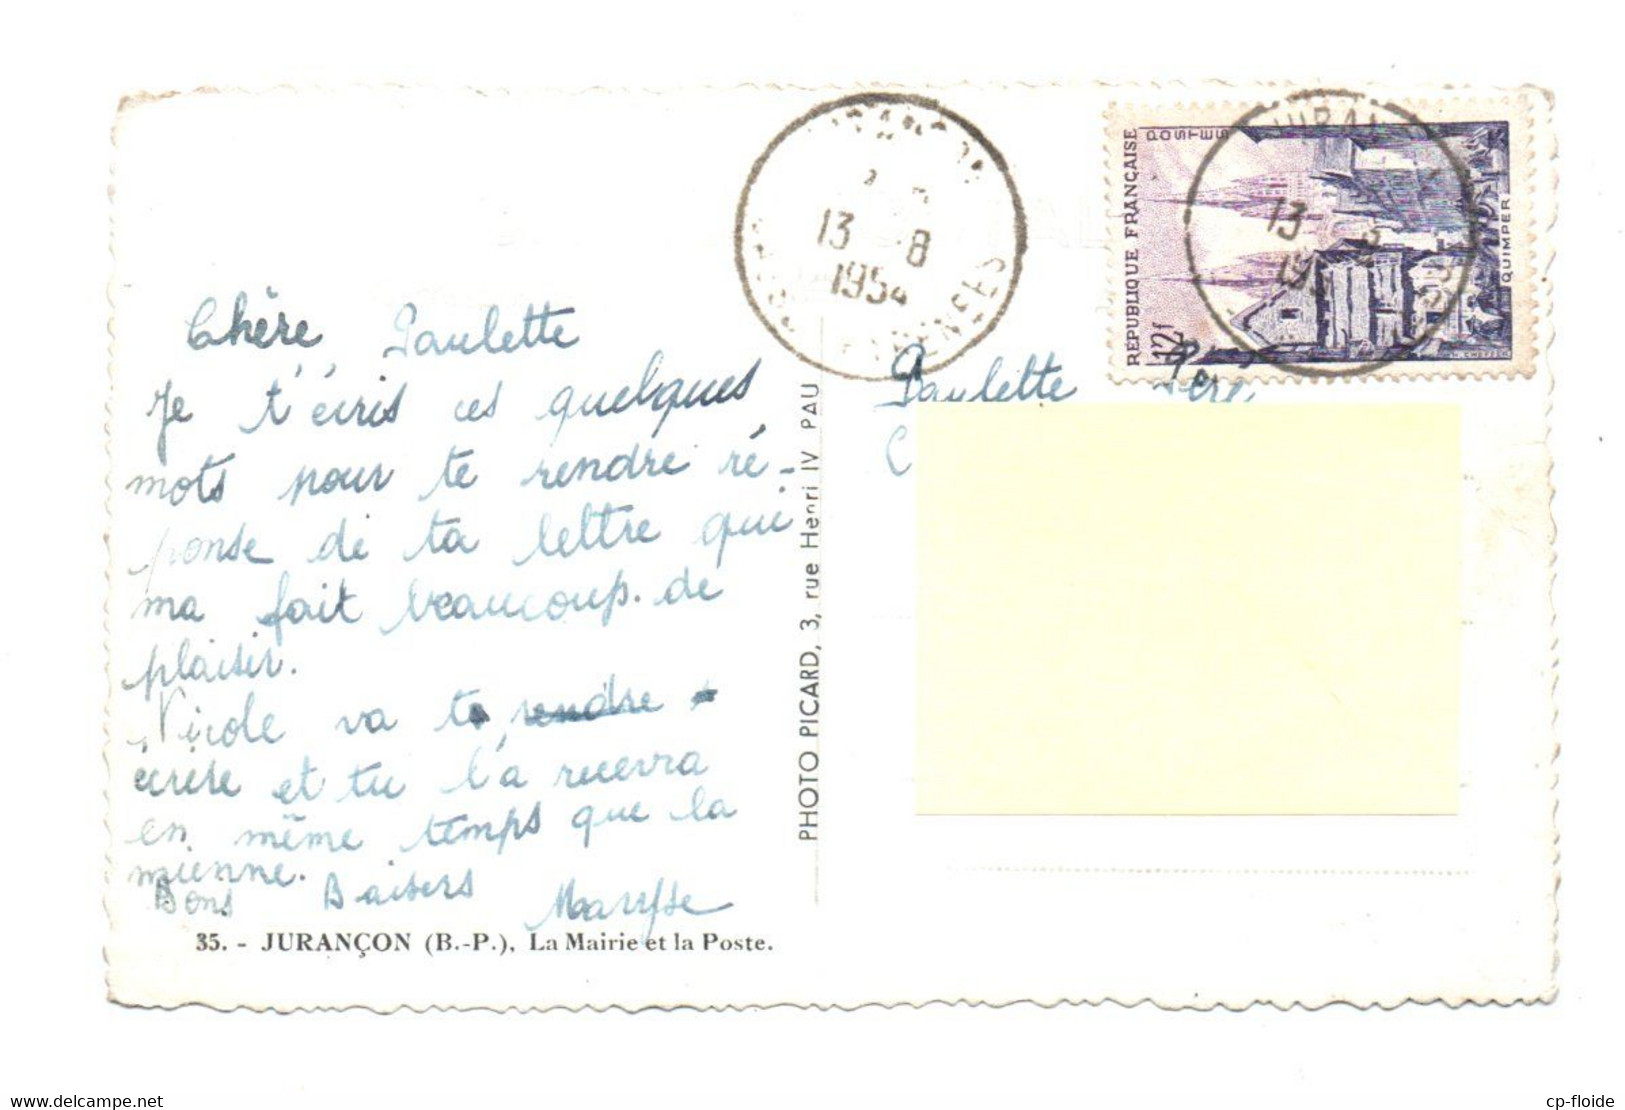 Chère Paulette
Je t'écris ces quelques
mots pour te rendre ré-
ponse de ta lettre qui
ma fait beaucoup. de
plaisir.
Nicole va te rendre
écrire et tu l'a recevra
en même temps que la
mienne.
Bons Baisers Maryse
35. - JURANÇON (B.-P.), La Mairie et la Poste.
PHOTO PICARD, 3, rue Henri IV PAU
JURANÇON
13 -8
1954
PYRENEES
REPUBLIQUE FRANÇAISE
POSTES
12f
QUIMPER
13
Paulette
cp-floide